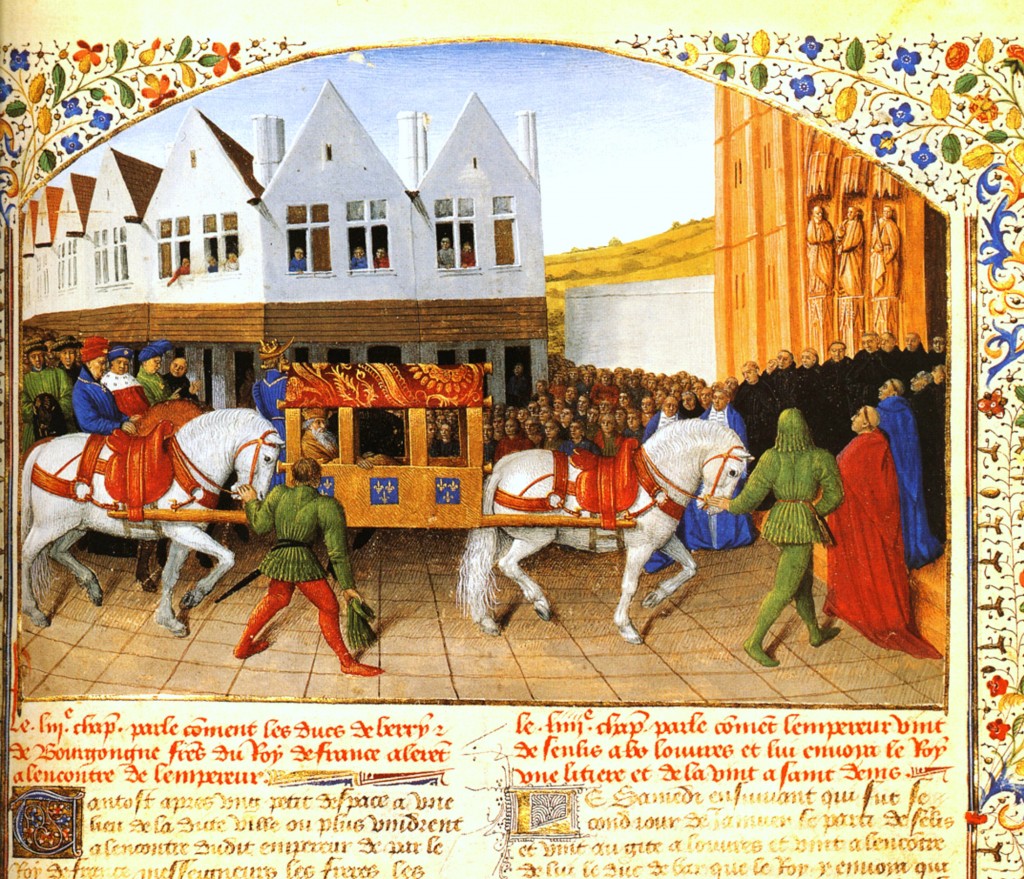 Le liiie chap. parle cõment les ducs de berry et
de Bourgongne freres du Roy de france alerẽt
alencontre de lempereur
Tantost apres ung petit despace a une
lieu de la dite ville ou plus vindrent
a lencontre dudit empereur de par le
Roy de france messeigneurs les freres les
le liiiie chap. parle cõmẽt lempereur vint
de senlis a louvres et lui envoya le Roy
une litiere et de la vint a saint denis
LE Samedi ensuivant qui fut se
cond jour de janvier se parti de senlis
et vint au giste a louvres et vint a lencõtre
de lui le duc de bar que le Roy y envoya qui